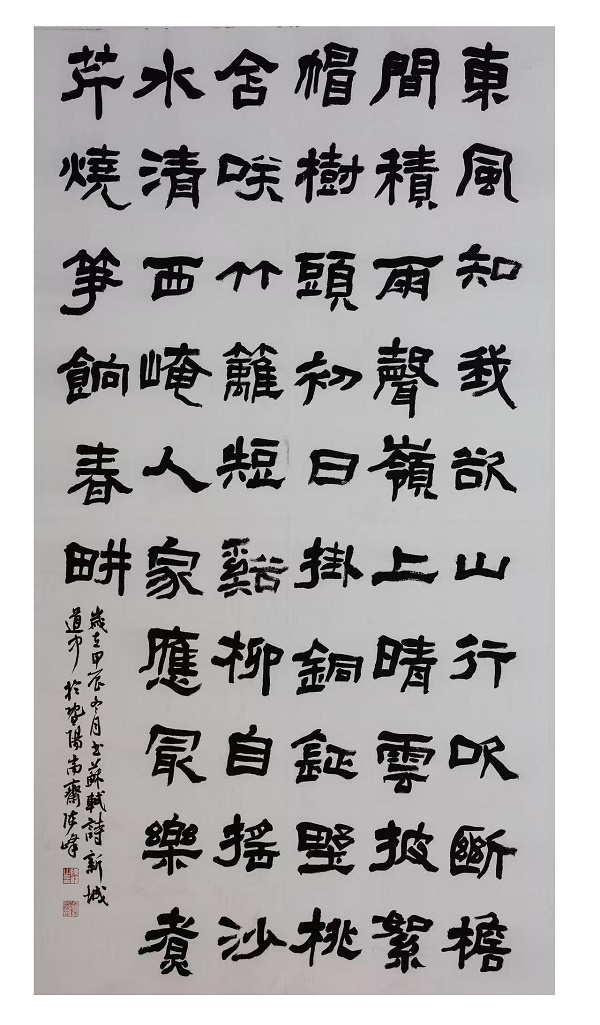 東風知我欲山行吹斷檐
間積雨聲嶺上晴雲披絮
帽樹頭初日掛銅鉦墅桃
含咲竹籬短谿柳自搖沙
水清西崦人家應冣樂煮
芹燒笋餉春畊
歲在甲辰冬月書蘇軾詩新城
道中於陽尚齋峰